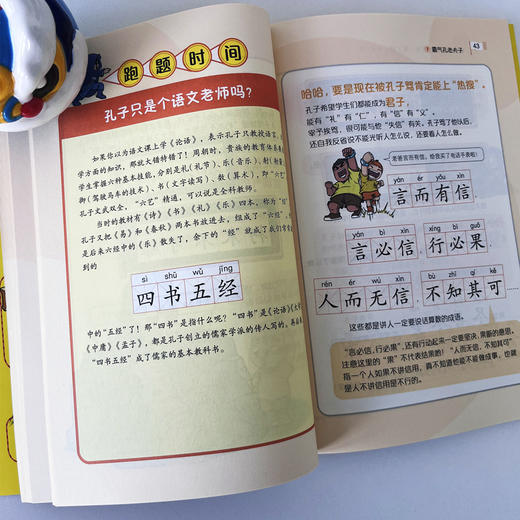 跑题时间
孔子只是个语文老师吗?
如果你以为语文课上学《论语》,表示孔子只教授语言
学方面的知识,那就大错特错了!周朝时,贵族的教育体系要
学生掌握六种基本技能,分别是礼(礼节)、乐(音乐)、射(
御(驾驶马车的技术)、书(文字读写)、数(算术),即“六艺”
孔子文武双全,“六艺”精通,可以说是全科教师。
当时的教材有《诗》《书》《礼》《乐》四本,称为“经”
孔子又把《易》和《春秋》两本书放进去,组成了“六经”,
是后来六经中的《乐》散失了,余下的“经”就成了我们常
到的
sì shū wǔ jīng
四书五经
中的“五经”了!那“四书”是指什么呢?“四书”是《论语》《大
《中庸》《孟子》,都是孔子创立的儒家学派的传人写的,再后来
“四书五经”成了儒家的基本教科书。
霸气孔老夫子 43
哈哈,要是现在被孔子骂肯定能上“热搜”。
孔子希望学生们都能成为君子,
能有“礼”有“仁”,有“信”有“义”。
宰予挨骂,很可能与他“失信”有关。孔子骂了他以后,
还自我反省说不能光听人怎么说,还要看人怎么做。
老爸言而有信,给我买了电话手表啦!
yán ér yǒu xìn
言而有信
yán bì xìn xíng bì guǒ
言必信,行必果
rén ér wú xìn bù zhī qí kě
人而无信,不知其可
这些都是讲人一定要说话算数的成语。
“言必信,行必果”,还有行动起来一定要坚决、果断的意思。
注意这里的“果”不代表结果哟!“人而无信,不知其可”
指一个人如果不讲信用,真不知道他能不能做成事,也就
是人不讲信用是不行的。